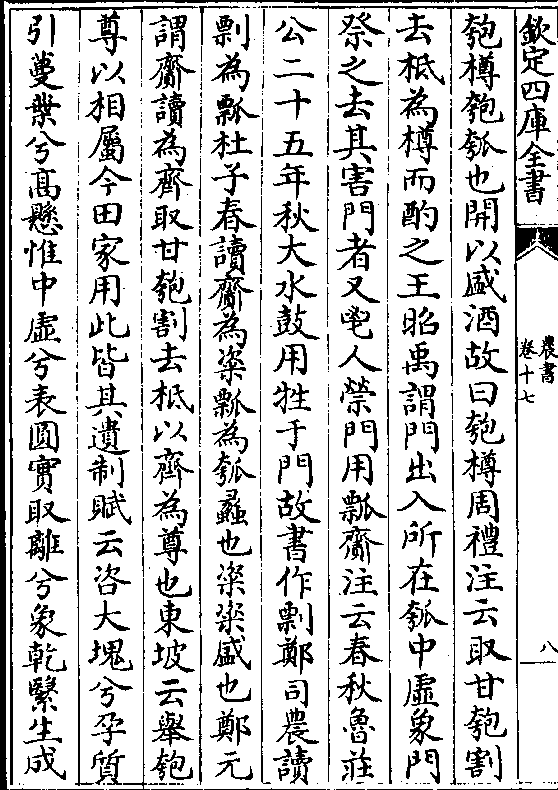 欽定四庫全書
農書
卷十七
八
匏樽匏瓠也開以盛酒故曰匏樽周禮注云取甘匏割
去柢為樽而酌之王昭禹謂門出入所在瓠中虛象門
祭之去其害門者又鬯人禜門用瓢齎注云春秋魯莊
公二十五年秋大水鼓用牲于門故書作剽鄭司農讀
剽為瓢杜子春讀齎為粢瓢為瓠蠡也粢粢盛也鄭元
謂齎讀為齊取甘匏割去柢以齊為尊也東坡云舉匏
尊以相屬今田家用此皆其遺制賦云咨大塊兮孕質
引蔓葉兮髙懸惟中虛兮表圓實取離兮象乾繄生成